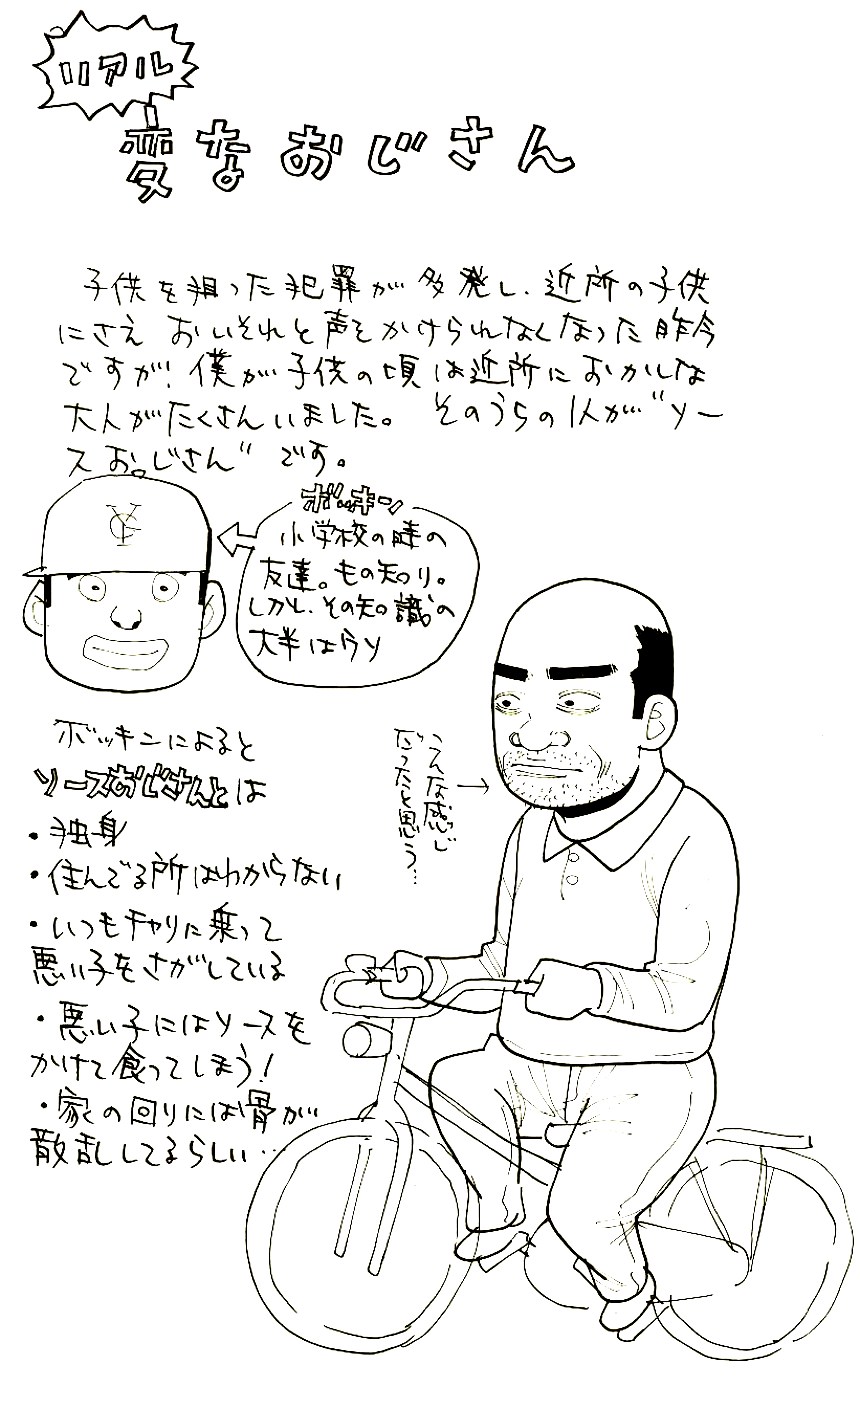 リアル
変なおじさん
子供を狙った犯罪が多発し、近所の子供
にさえ おいそれと声をかけられなくなった昨今
ですが、僕が子供の頃は近所におかしな
大人がたくさんいました。 そのうちの1人が"ソー
スおじさん" です。
YG
ボッキン
小学校の時の
友達。もの知り。
しかし、その知識の
大半はウソ
ボッキンによると
ソースおじさんとは
・独身
・住んでる所はわからない
・いつもチャリに乗って
悪い子をさがしている
・悪い子にはソースを
かけて食ってしまう!
・家の回りには骨が
散乱してるらしい…
こんな感じ
だったと思う…